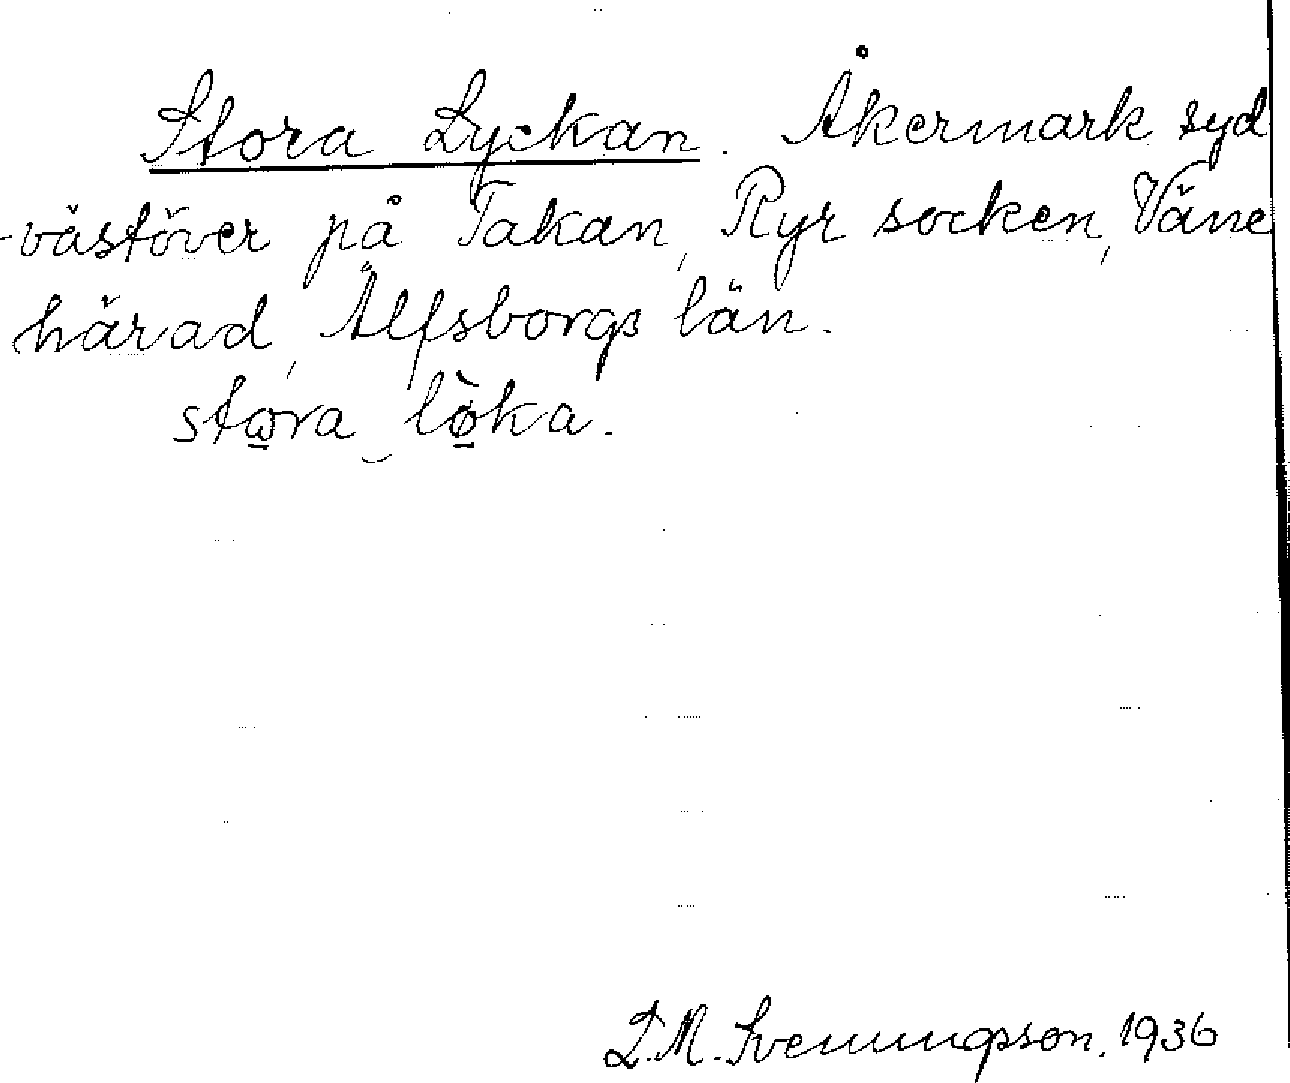 Stora Lyckan. Åkermark syd
-västöver på Takan, Ryr socken, Väne
härad, Älfsborgs län.
stω̱ra‿lø̱̀ka.
D.M. Svenungsson. 1936